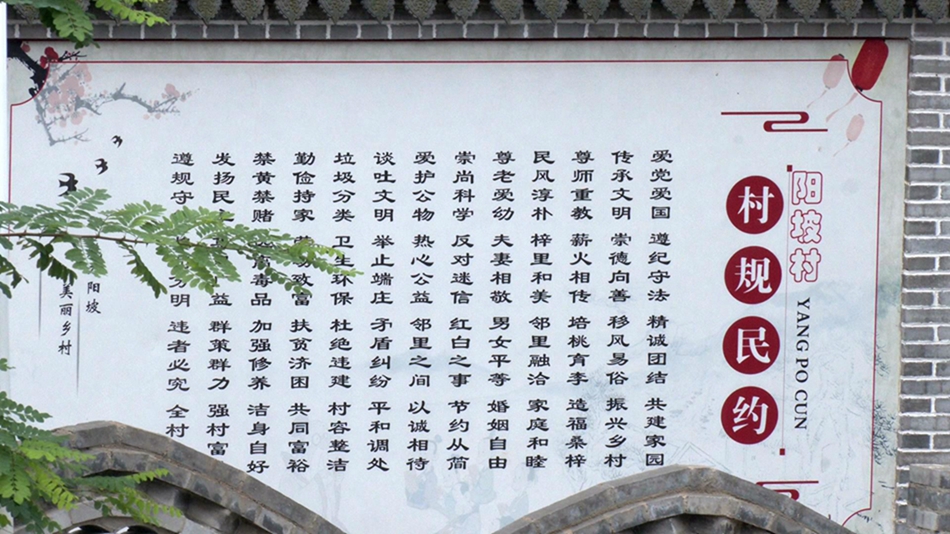 阳坡村
YANG PO CUN
村规民约
爱党爱国 遵纪守法 精诚团结 共建家园
传承文明 崇德向善 移风易俗 振兴乡村
尊师重教 薪火相传 培桃育李 造福桑梓
民风淳朴 梓里和美 邻里融洽 家庭和睦
尊老爱幼 夫妻相敬 男女平等 婚姻自由
崇尚科学 反对迷信 红白之事 节约从简
爱护公物 热心公益 邻里之间 以诚相待
谈吐文明 举止端庄 矛盾纠纷 平和调处
垃圾分类 卫生环保 杜绝违建 村容整洁
勤俭持家 劳动致富 扶贫济困 共同富裕
禁黄禁赌 毒品 加强修养 洁身自好
发扬民 益 群策群力 强村富
遵规守 明 违者必究 全村
阳坡
美丽乡村